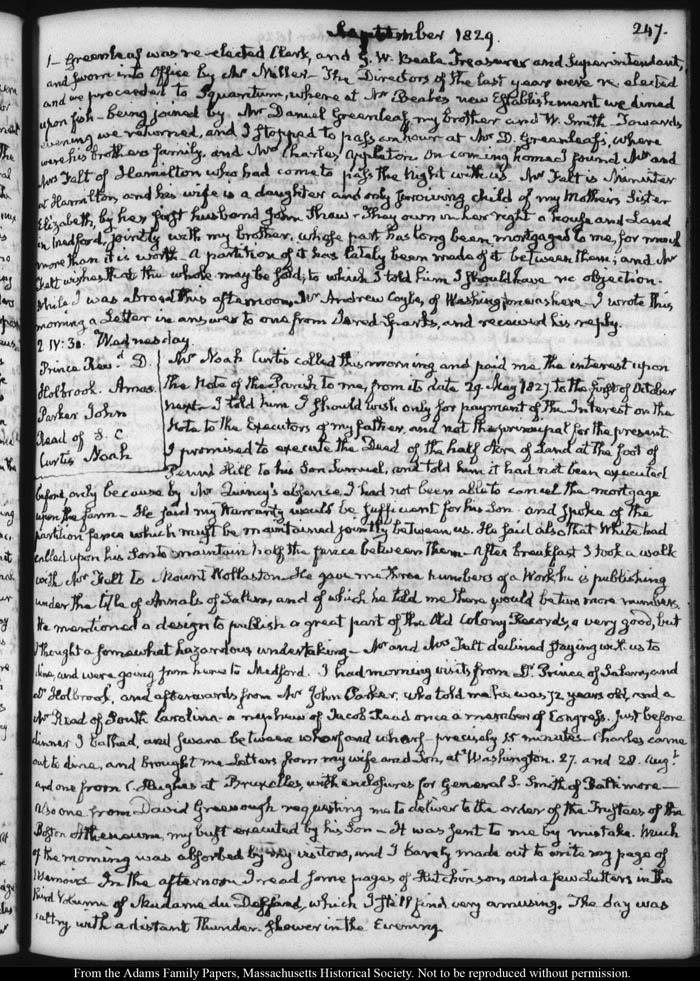 September 1829.
247.
1– Greenleaf was re-elected Clerk, and G. W. Beale Treasurer and Superintendent,
and sworn into Office by Mr Miller– The Directors of the last year were re elected
and we proceeded to Squantum, where at Mr Beale's new Establishment we dined
upon fish– being joined by Mr Daniel Greenleaf, my brother and W. Smith– Towards
evening we returned, and I stopped to pass an hour at Mr D. Greenleaf's, where
were his brother's family, and Mrs Charles Appleton. On coming home I found Mr and
Mrs Felt of Hamilton who had come to pass the Night with us. Mr Felt is Minister
at Hamilton and his wife is a daughter and only surviving child of my Mothers Sister
Elizabeth, by her first husband John Shaw– They own in her right a house and Land
in Medford, jointly with my brother, whose part has long been mortgaged to me, for much
more than it is worth. A partition of it has lately been made of it between them; and Mr
Felt wishes that the whole may be sold; to which I told him I should have no objection.
While I was abroad this afternoon, Mr Andrew Coyle, of Washington was here– I wrote this
morning a Letter in answer to one from Jared Sparks, and received his reply.
2. IV:30. Wednesday.
Prince Revd. D.
Holbrook. Amos
Parker John
Read of S. C
Curtis Noah
Mr Noah Curtis called this morning and paid me the interest upon
the Note of the Parish to me, from its date 29. May 1827 to the first of October
next– I told him I should wish only for payment of the Interest on the
Note to the Executors of my father, and not the principal for the present
I promised to execute the Deed of the half Acre of Land at the foot of
Penns Hill to his Son Samuel, and told him it had not been executed
before, only because by Mr Quincy's absence, I had not been able to cancel the mortgage
upon the farm– He said my Warranty would be sufficient for his Son– and spoke of the
partition fence which must be maintained jointly between us. He said also that White had
called upon his Son to maintain half the fence between them– After breakfast I took a walk
with Mr Felt to Mount Wollaston– He gave me three numbers of a Work, he is publishing
under the title of Annals of Salem, and of which he told me there would be two more numbers.
He mentioned a design to publish a great part of the Old Colony Records, a very good, but
I thought a somewhat hazardous undertaking– Mr and Mrs Felt declined staying with us to
dine, and were going from hence to Medford. I had morning visits from Dr. Prince of Salem, and
Dr Holbrook, and afterwards from Mr John Parker, who told me he was 72 years old, and a
Mr Read of South Carolina– a nephew of Jacob Read once a member of Congress. Just before
dinner I bathed, and swam between wharf and wharf– precisely 15 minutes– Charles came
out to dine, and brought me Letters from my wife and Son, at Washington. 27. and 28. Augt.
and one from C. Hughes at Bruxelles, with enclosures for General S. Smith of Baltimore–
Also one from David Greenough requesting me to deliver to the order of the Trustees of the
Boston Athenaeum, my bust executed by his Son– It was sent to me by mistake. Much
of the morning was absorbed by my visitors, and I barely made out to write my page of
Memoirs. In the afternoon I read some pages of Hutchinson, and a few Letters in the
third Volume of Madame du Deffand, which I still find very amusing. The day was
sultry with a distant Thunder shower in the Evening.
From the Adams Family Papers, Massachusetts Historical Society. Not to be reproduced without permission.